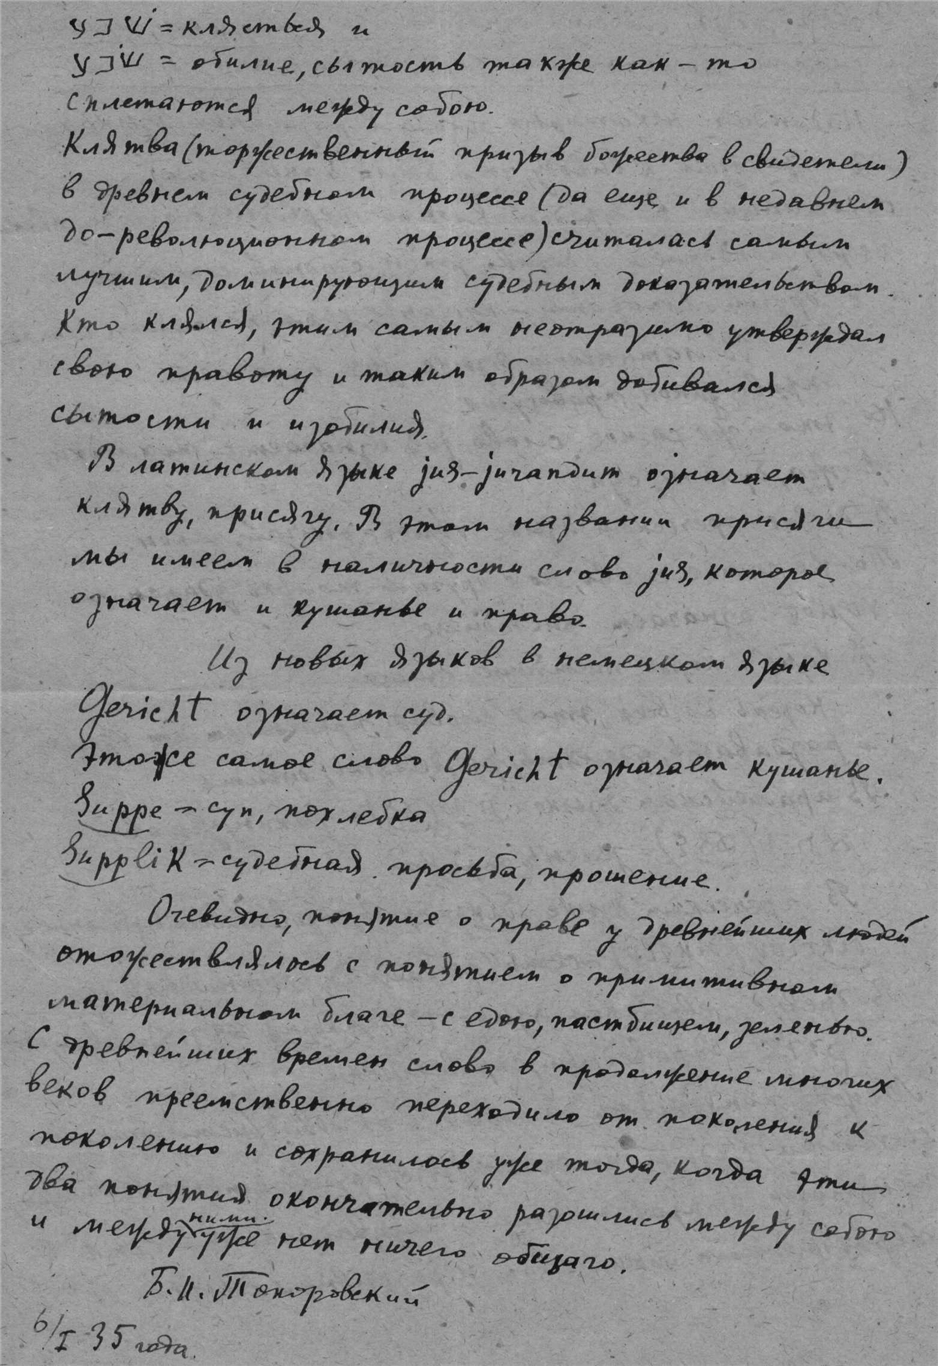 שׁבע = клясться и
שׂבע = обилие, сытость также как-то
сплетаются между собою.
Клятва (торжественный призыв божества в свидетели)
в древнем судебном процессе (да еще и в недавнем
до-революционном процессе) считалась самым
лучшим, доминирующим судебным доказательством.
Кто клялся, этим самым неотразимо утверждал
свою правоту и таким образом добивался
сытости и изобилия.
В латинском языке jus-jurandum означает
клятву, присягу. В этом названии присяги
мы имеем в наличности слово jus, которое
означает и кушанье и право.
Из новых языков в немецком языке
Gericht означает суд.
Это же самое слово Gericht означает кушанье.
Suppe = суп, похлебка
Supplik = судебная просьба, прошение.
Очевидно, понятие о праве у древнейших людей
отожествлялось с понятием о примитивном
материальном благе – с едою, пастбищем, зеленью.
С древнейших времен слово в продолжение многих
веков преемственно переходило от поколения к
поколению и сохранилось уже тогда, когда эти
два понятия окончательно разошлись между собою
и между ними уже нет ничего общаго.
Б.И. Топоровский
6/I 35 года.